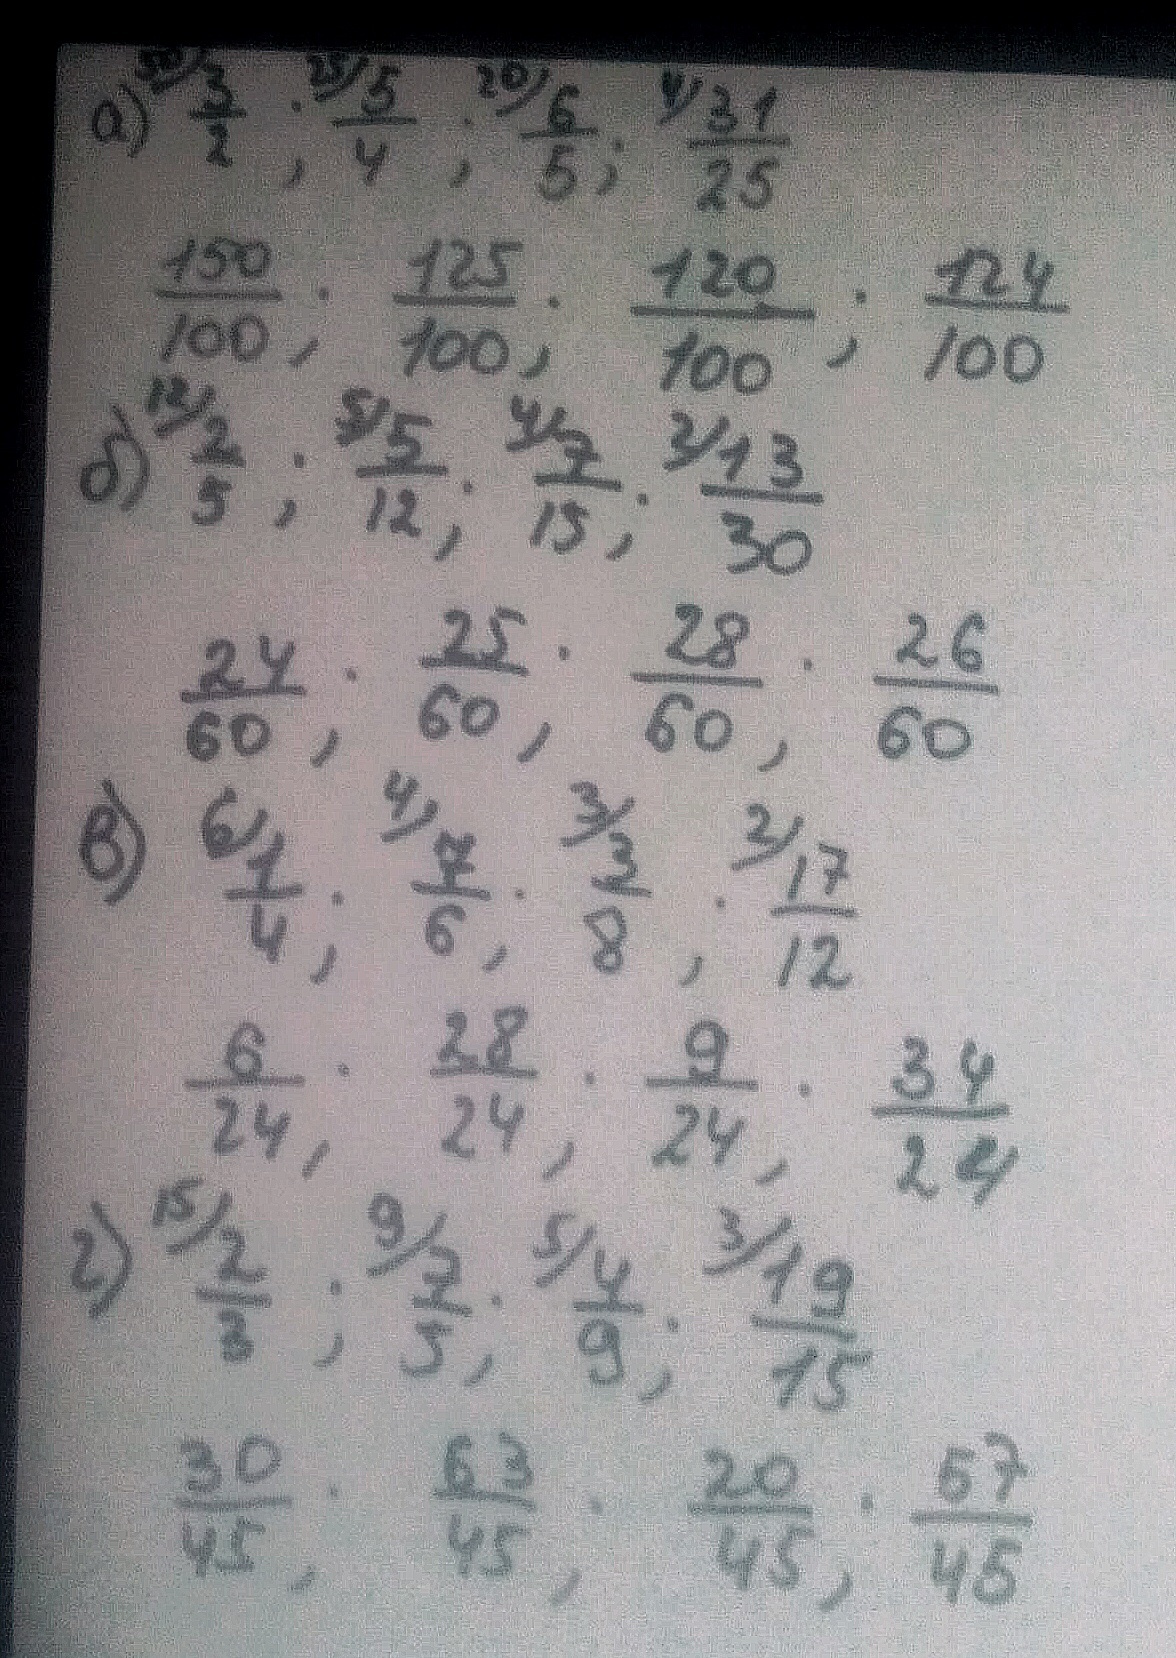 а) 50/ 3/2 ; 25/ 5/4 ; 20/ 6/5 ; 4/ 31/25
150/100 ; 125/100 ; 120/100 ; 124/100
б) 12/ 2/5 ; 5/ 5/12 ; 4/ 7/15 ; 2/ 13/30
24/60 ; 25/60 ; 28/60 ; 26/60
в) 6/ 1/4 ; 4/ 7/6 ; 3/ 3/8 ; 2/ 17/12
6/24 ; 28/24 ; 9/24 ; 34/24
г) 15/ 2/3 ; 9/ 7/5 ; 5/ 4/9 ; 3/ 19/15
30/45 ; 63/45 ; 20/45 ; 57/45